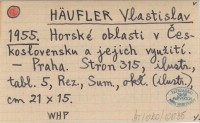 HÄUFLER Vlastislav
1955. Horské oblasti v Čes-
koslovensku a jejich využití.
– Praha. Stron 315, ilustr.,
tabl. 5, Rez., Sum., okł. (ilustr.),
cm 21 × 15.
WHP